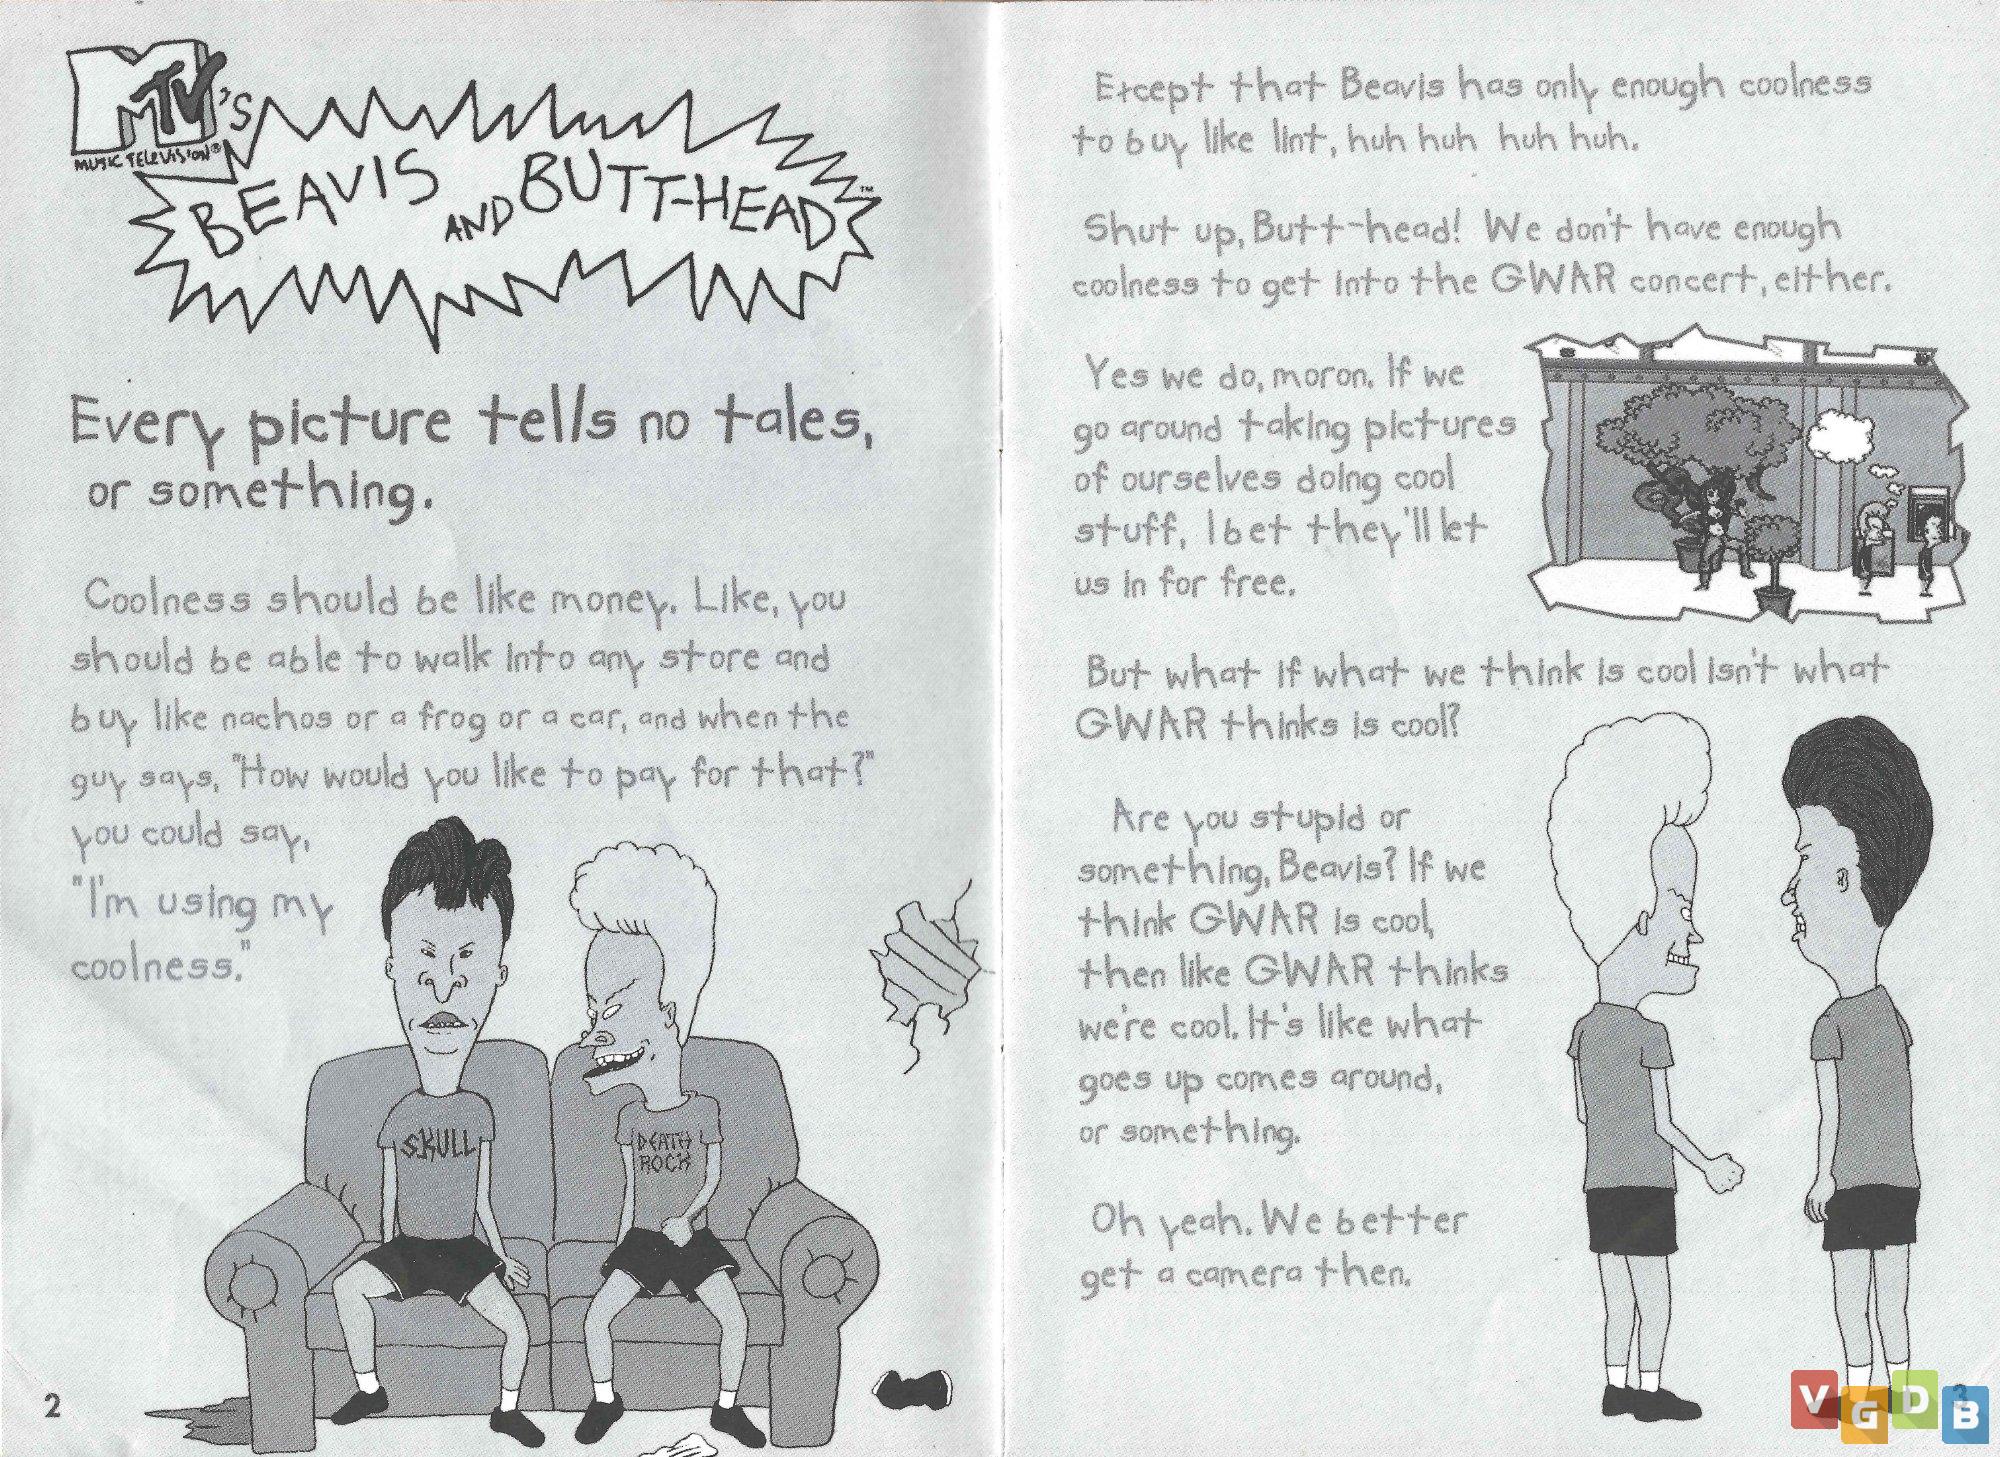 MTV'S
MUSIC TELEVISION®
BEAVIS AND BUTT-HEAD™
Every picture tells no tales,
or something.
Coolness should be like money. Like, you
should be able to walk into any store and
buy like nachos or a frog or a car, and when the
guy says, "How would you like to pay for that?"
you could say,
"I'm using my
coolness."
SKULL
DEATH
ROCK
2
Except that Beavis has only enough coolness
to buy like lint, huh huh huh huh.
Shut up, Butt-head! We don't have enough
coolness to get into the GWAR concert, either.
Yes we do, moron. If we
go around taking pictures
of ourselves doing cool
stuff, I bet they'll let
us in for free.
But what if what we think is cool isn't what
GWAR thinks is cool?
Are you stupid or
something, Beavis? If we
think GWAR is cool,
then like GWAR thinks
we're cool. It's like what
goes up comes around,
or something.
Oh yeah. We better
get a camera then.
3
VGDB